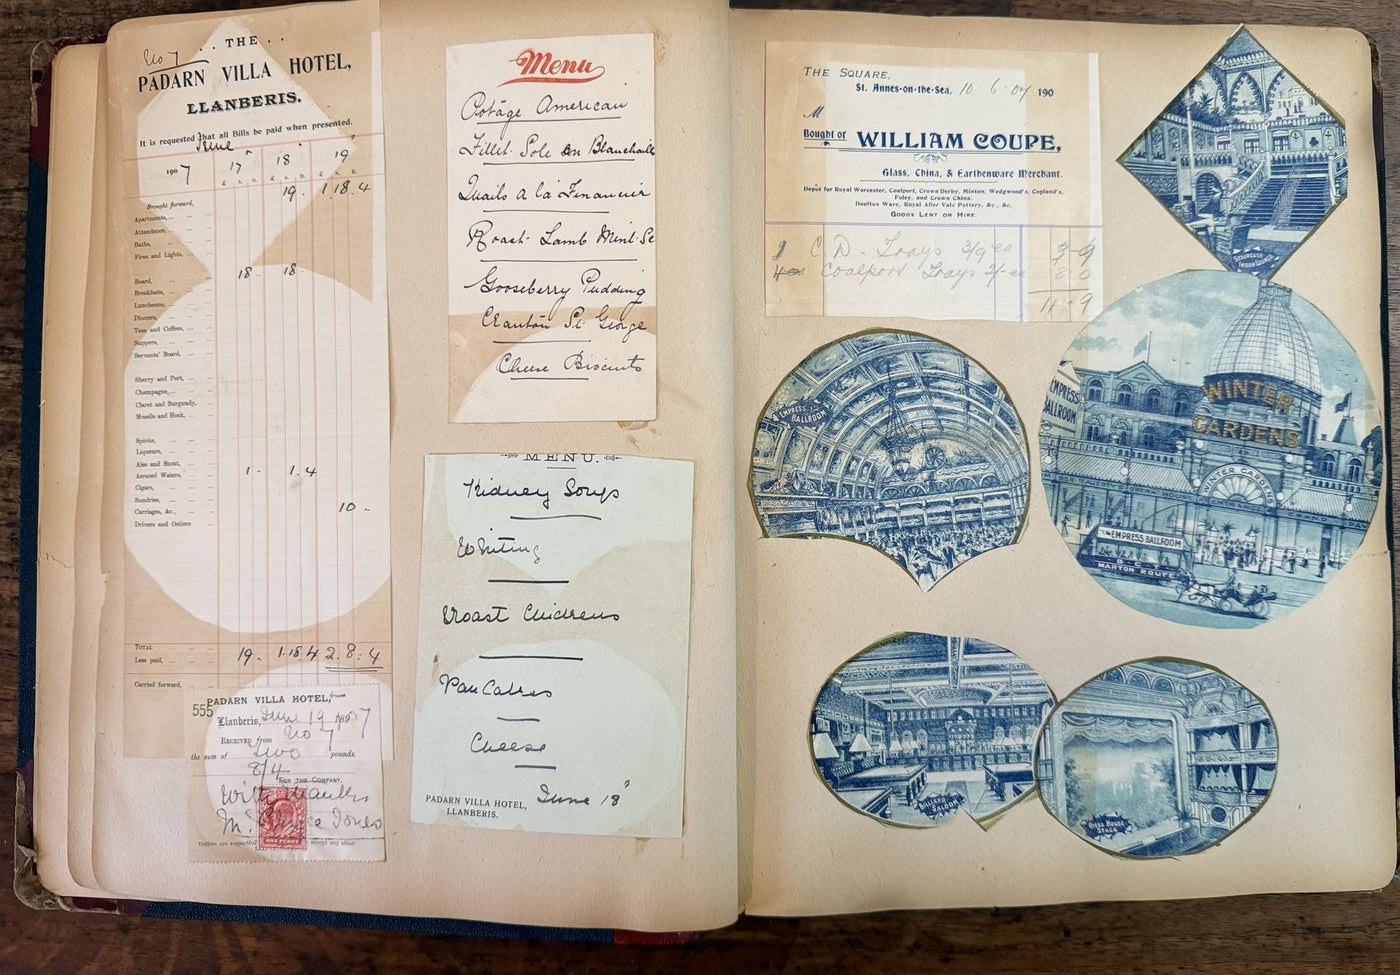 No 7
. . THE . .
PADARN VILLA HOTEL,
LLANBERIS.
It is requested that all Bills be paid when presented.
June
1907 17 " 18 " 19
£ s. d. £ s. d. £ s. d.
Brought forward, 19. 1 18. 4
Apartments,
Attendance,
Baths,
Fires and Lights,
Board, 18 . 18 .
Breakfasts,
Luncheons,
Dinners,
Teas and Coffees,
Suppers,
Servants' Board,
Sherry and Port,
Champagne,
Claret and Burgundy,
Moselle and Hock,
Spirits,
Liqueurs,
Ales and Stout,
Aerated Waters, 1 . 1. 4
Cigars,
Sundries,
Carriages, &c., 10 -
Drivers and Ostlers
TOTAL 19 . 1. 18. 4 2. 8 : 4
Less paid,
Carried forward,
555 PADARN VILLA HOTEL,
Llanberis, June 19 1907
RECEIVED from No 7
the sum of Two pounds.
8/4
FOR THE COMPANY.
With thanks
M. Jones
ONE PENNY
Visitors are respectfully accept any other
Menu
Potage American
Fillet Sole en Blanchaille
Quails a la Financier
Roast Lamb Mint Sc
Gooseberry Pudding
St George
Cheese Biscuits
MENU.
Kidney Soup
Whiting
Roast Chickens
Pan Cakes
Cheese
June 18"
PADARN VILLA HOTEL,
LLANBERIS.
THE SQUARE,
St. Annes-on-the-Sea, 10 . 6 . 07 190
M
Bought of WILLIAM COUPE,
Glass, China, & Earthenware Merchant.
Depot for Royal Worcester, Coalport, Crown Derby, Minton, Wedgwood's, Copeland's,
Foley, and Crown China.
Doulton Ware, Royal Aller Vale Pottery, &c., &c.
GOODS LENT ON HIRE.
1 C D. Trays 3/9 ea 3-9
4 Coalport Trays 2/- ea 8 - 0
11 - 9
STAIRCASE OF
INDIAN LOUNGE
EMPRESS
BALLROOM
EMPRESS
BALLROOM
WINTER
GARDENS
WINTER GARDENS
THE EMPRESS BALLROOM
B. C. T.
MARTON ROUTE
BILLIARD
SALOON
OPERA HOUSE
STAGE